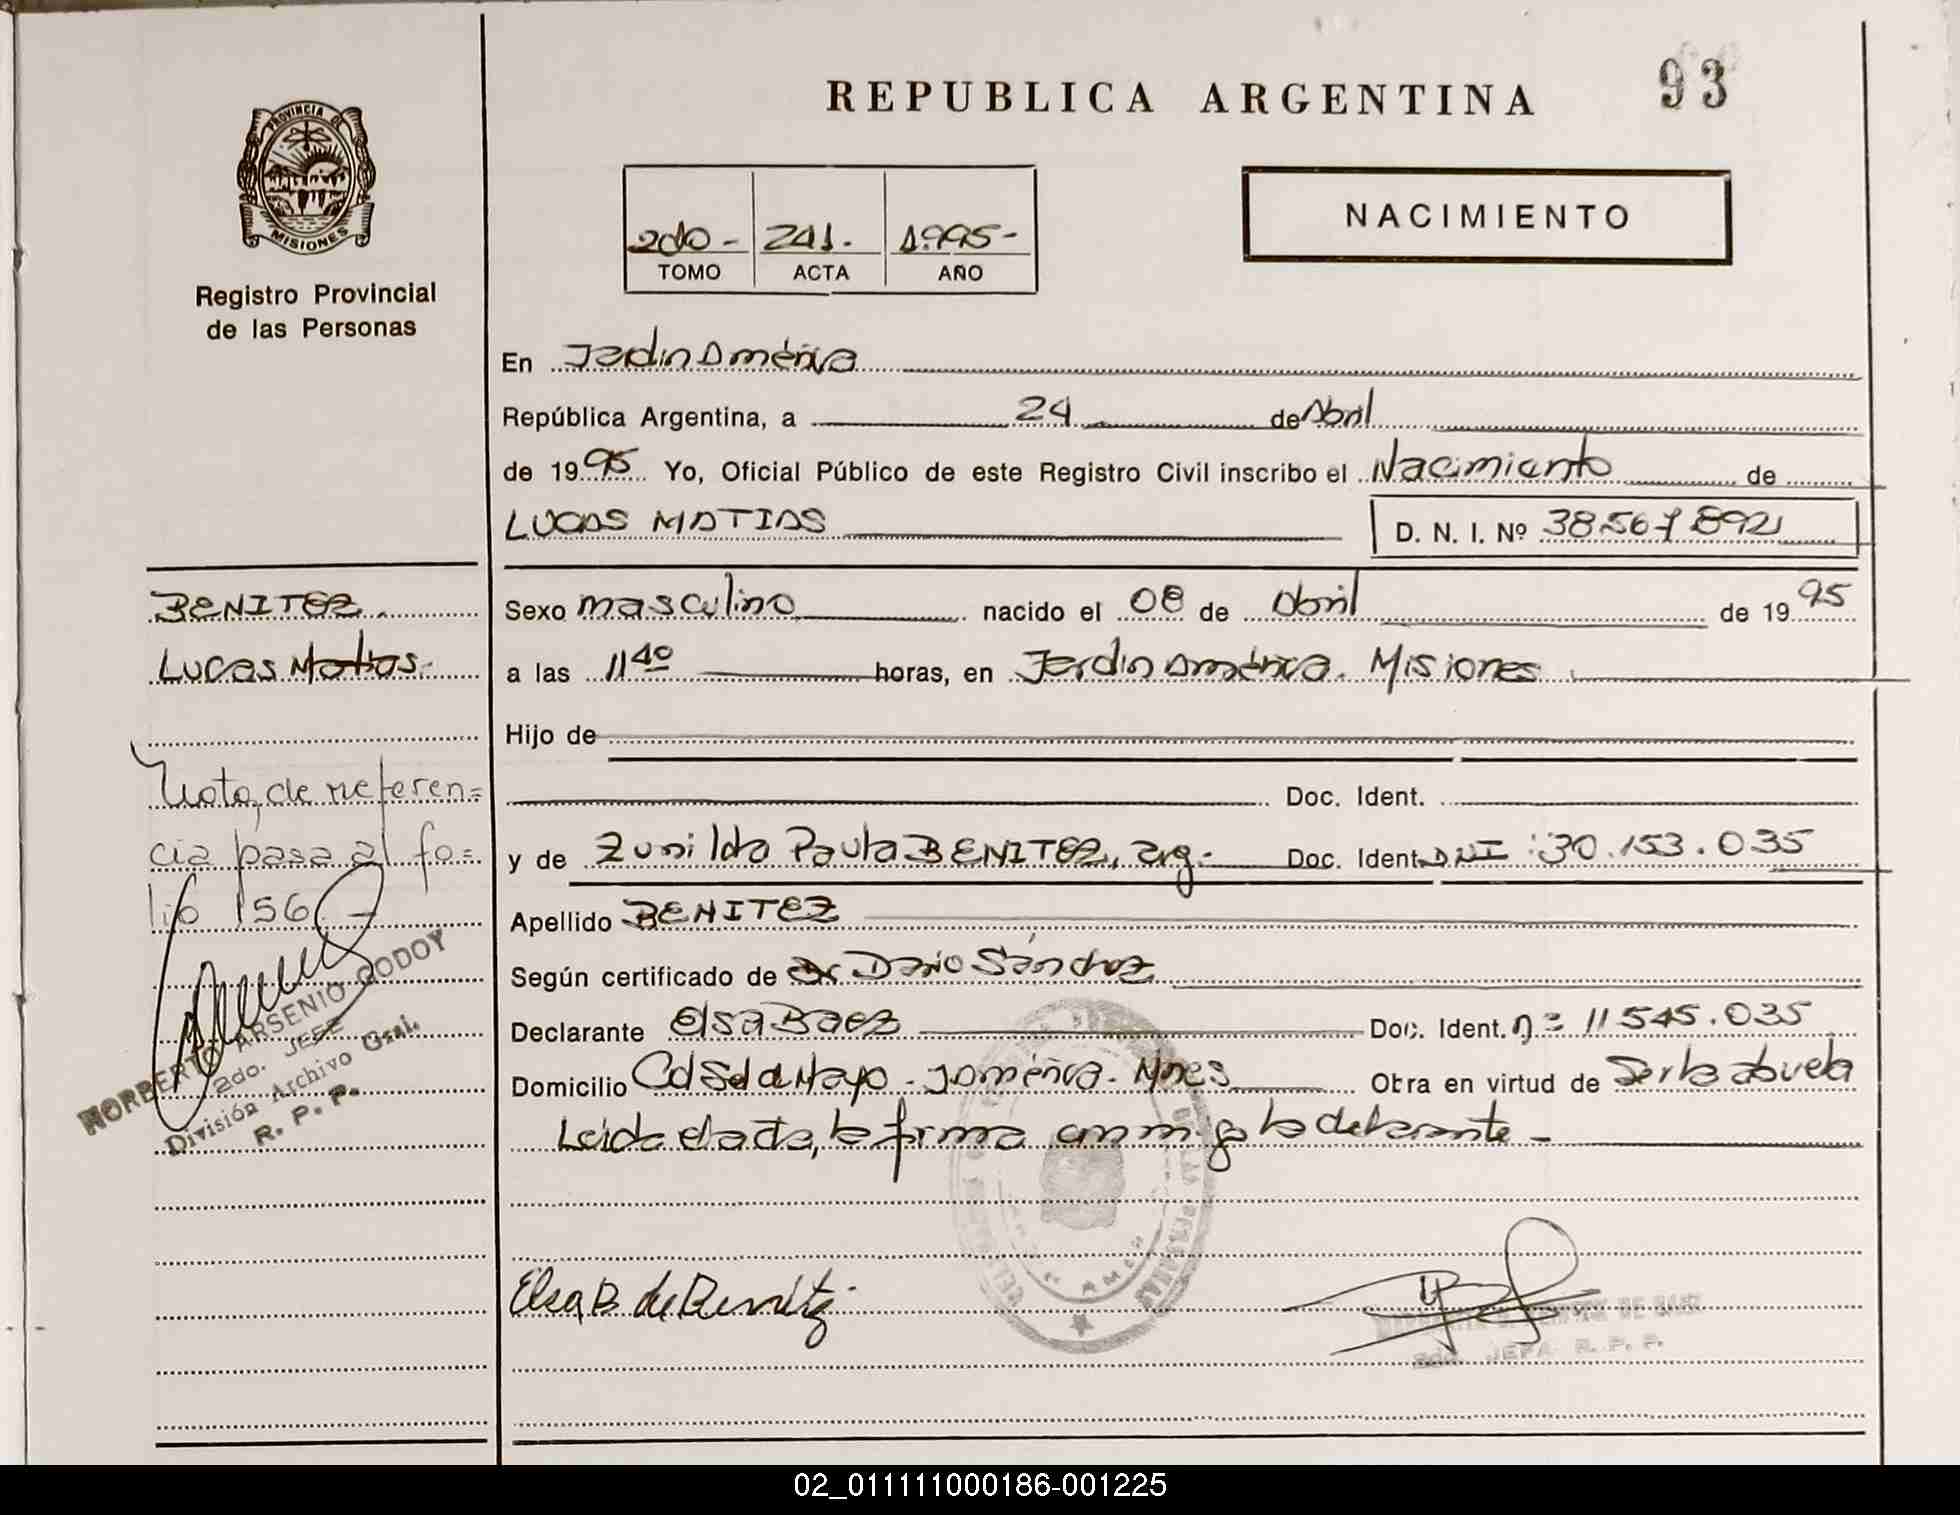 REPUBLICA ARGENTINA
93
PROVINCIA DE
MISIONES
Registro Provincial
de las Personas
2do - 241. 1.995-
TOMO ACTA AÑO
NACIMIENTO
En Jardin América
República Argentina, a 24 de Abril
de 1995 Yo, Oficial Público de este Registro Civil inscribo el Nacimiento de
LUCAS MATIAS D. N. I. Nº 38.567.892
BENITEZ
Lucas Matias.-
Nota de referen=
cia pasa al fo=
lio 156.-
NORBERTO ARSENIO GODOY
2do. JEFE
División Archivo Gral.
R. P. P.
Sexo masculino nacido el 08 de Abril de 1995
a las 11 40 horas, en Jardin América. Misiones
Hijo de
Doc. Ident.
y de Zunilda Paula BENITEZ, arg.- Doc. Ident. DNI: 30.153.035
Apellido BENITEZ
Según certificado de Dr Dario Sánchez
Declarante Elsa Baez Doc. Ident. 11545.035
Domicilio J América - Mnes Obra en virtud de Ser la abuela
Leida el acta, la firma conmigo la declarante -
Elsa B. de Benitez
DE
2do. JEFA R. P. P.
02_011111000186-001225